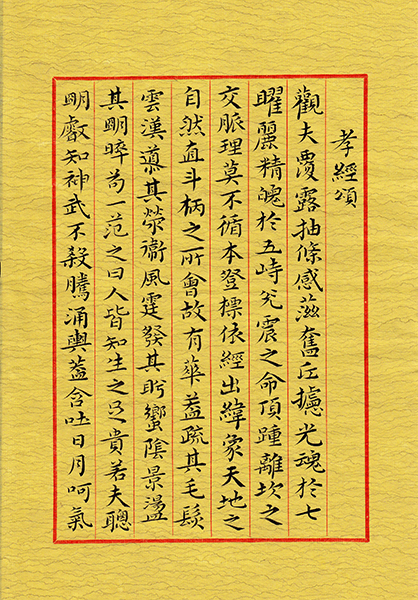 孝經頌
觀夫覆露抽條感滋奮丘攄光魂於七
曜麗精魄於五峙兊震之命頂踵離坎之
交脈理莫不循本登標依經出緯象天地之
自然直斗柄之所會故有華蓋疏其毛髮
雲漢導其滎衞風霆發其肹蠁陰景盪
其朙晬苟一范之曰人皆知生之貴若夫聰
朙叡知神武不殺騰涌輿蓋含吐日月呵氣